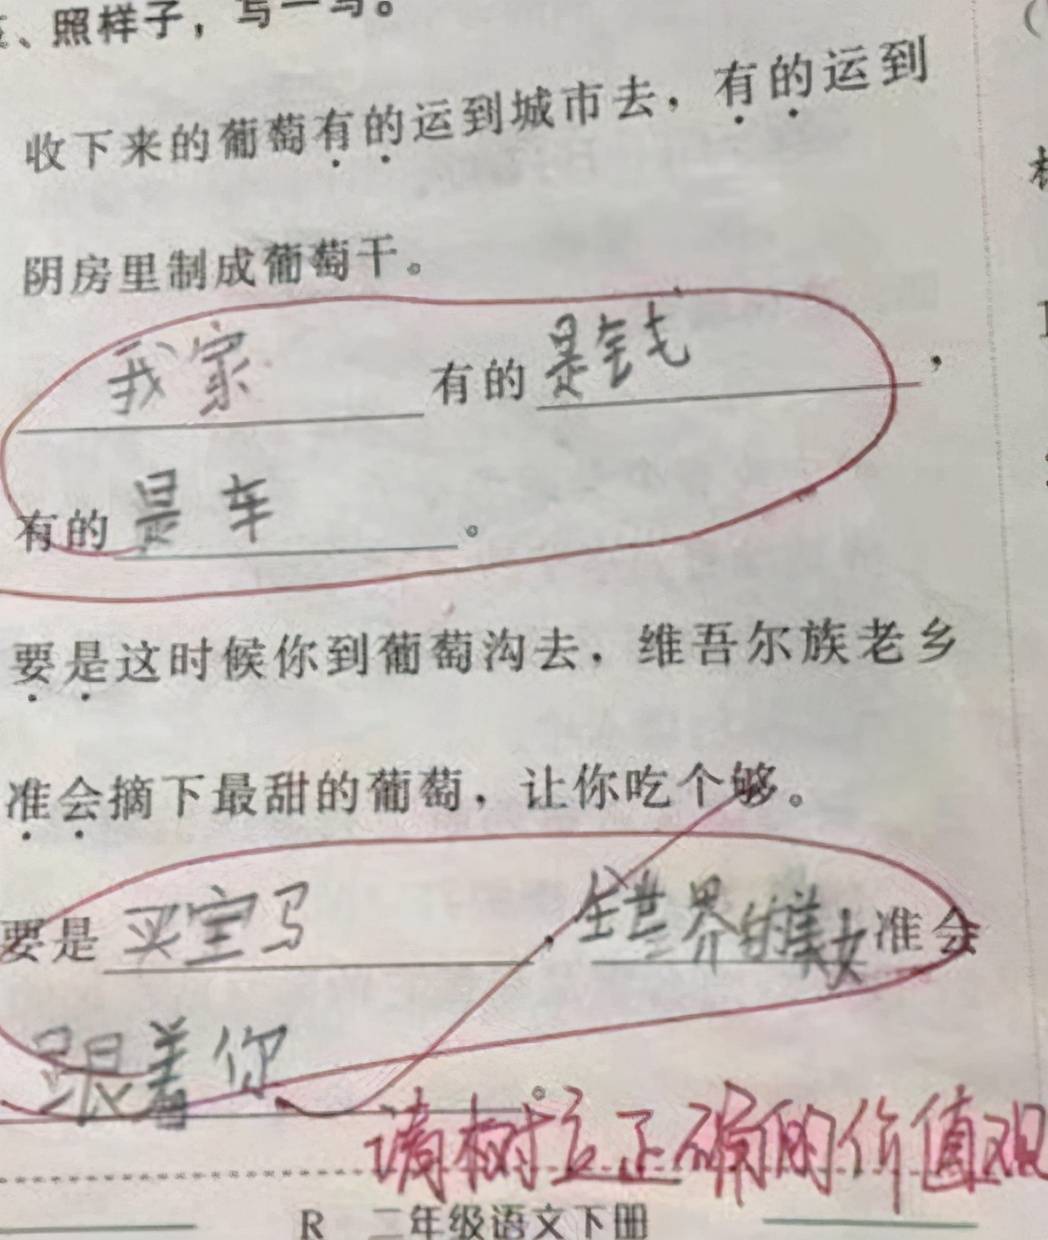 、照样子，写一写。
收下来的葡萄有的运到城市去，有的运到
阴房里制成葡萄干。
我家有的是钱，
有的是车。
要是这时候你到葡萄沟去，维吾尔族老乡
准会摘下最甜的葡萄，让你吃个够。
要是买宝马，全世界的美女准会
跟着你。
请树立正确的价值观
R 二年级语文下册